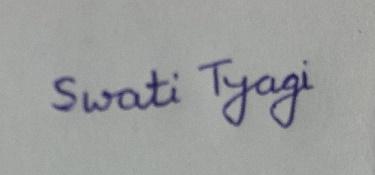 Swati Tyagi